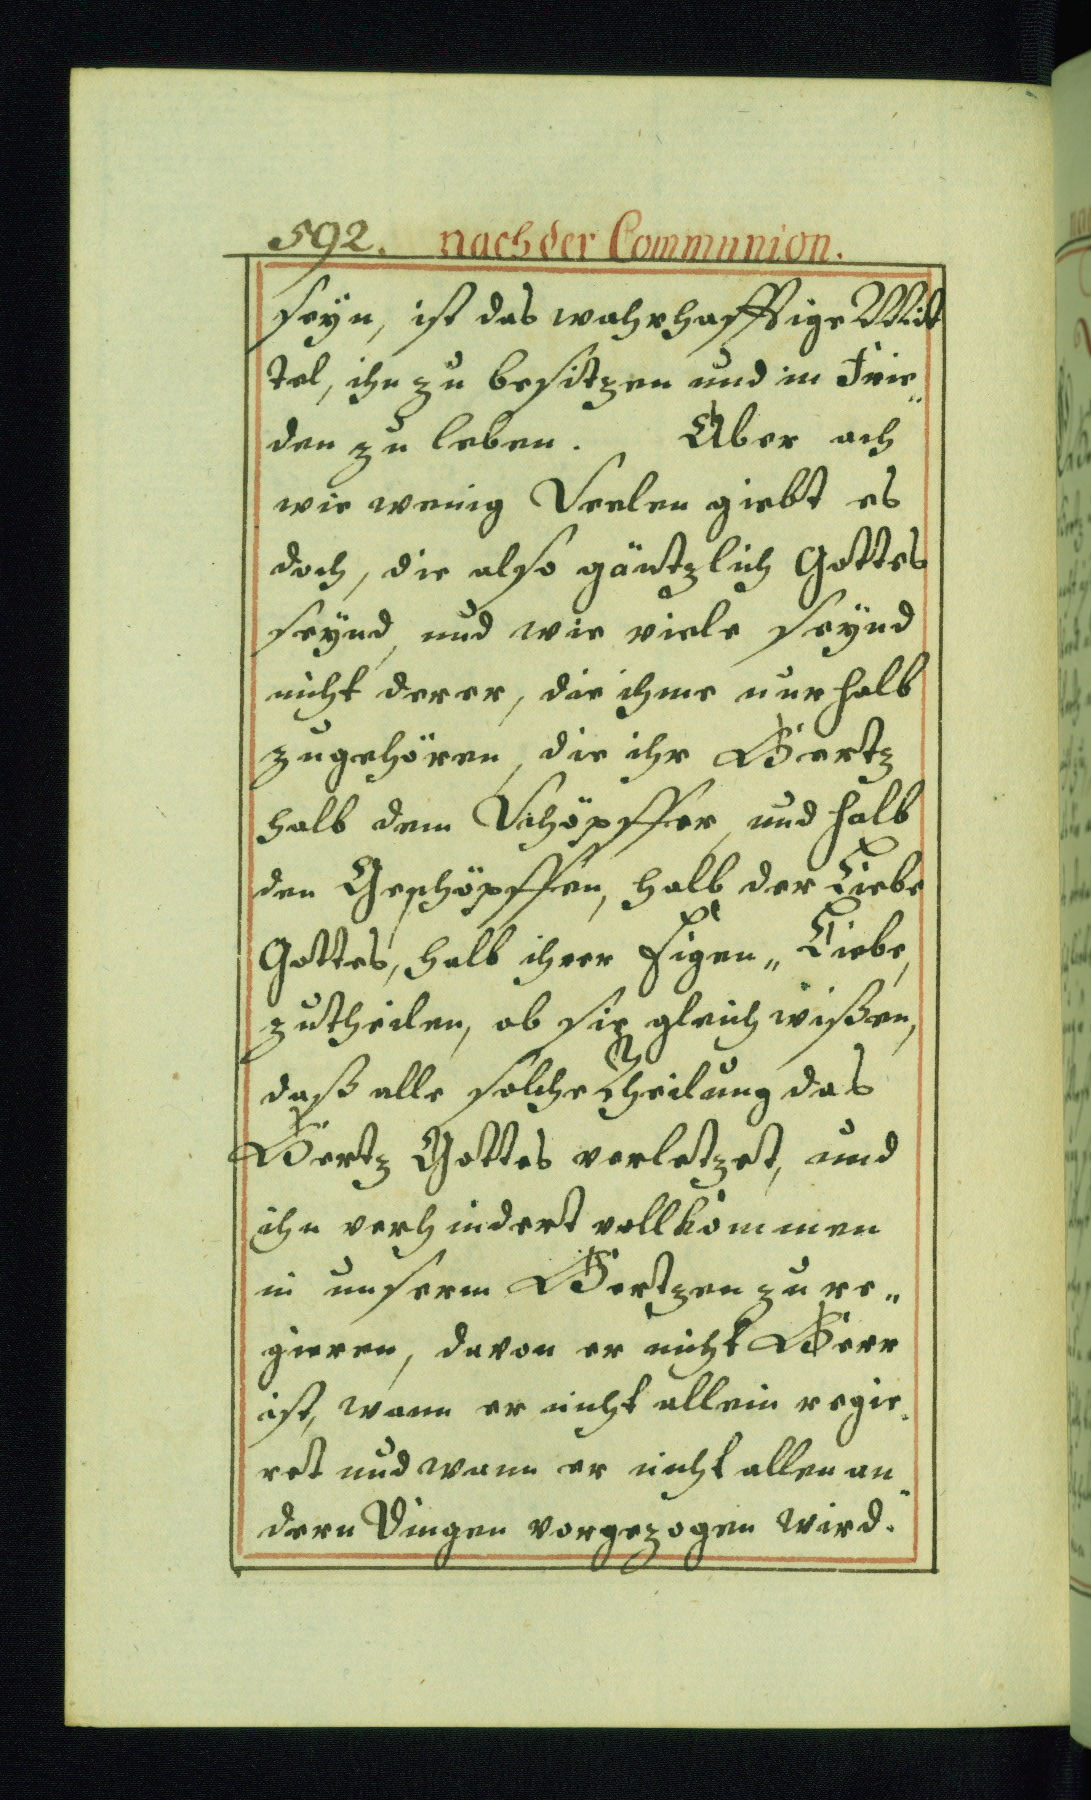 592. nach der Communion.
seyn, ist das wahrhafftige Mit
tel, ihn zu besitzen und in Frie„
den zu leben. Aber ach
wie wenig Seelen giebt es
doch, die also gäntzlich Gottes
seynd, und wie viele seynd
nicht derer, die ihme nur halb
zugehören, die ihr Hertz
halb dem Schöpffer, und halb
den Geschöpffen, halb der Liebe
Gottes, halb ihrer Eigen„ Liebe,
zutheilen, ob sie gleich wißen,
daß alle solche Theilung das
Hertz Gottes verletzet, und
ihn verhindert vollkommen
in unserm Hertzen zu re„
gieren, davon er nicht Herr
ist, wann er nicht allein regie„
ret und wann er nicht allen an„
dern Dingen vorgezogen wird.